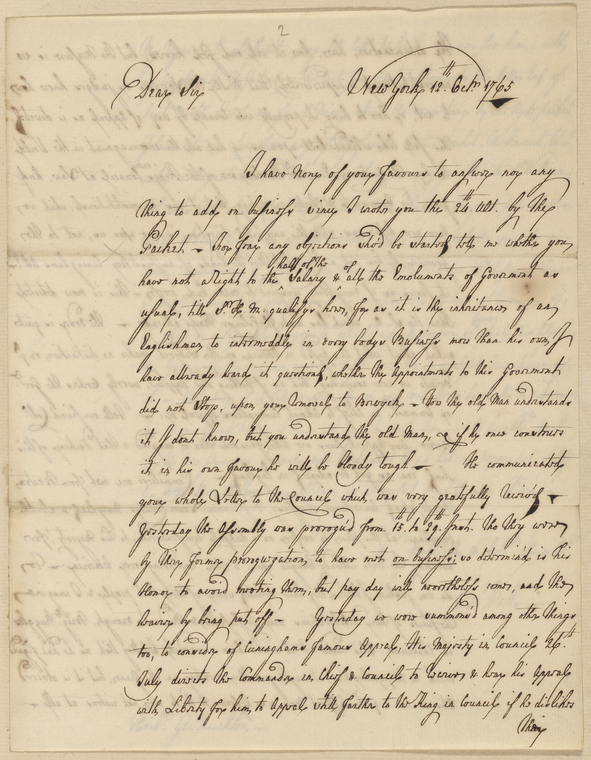 2
Dear Sir New York 12th. Octr. 1765
I have none of your favours to answer nor any
thing to add on business since I wrote you the 24th Ult. by the
Packet. – For fear any objections sho'd be started, tell me whether you
have not a Right to the half of the Salary & of all the Emoluments of Goverment as
usual, till Sr. H. M. qualifys here, for as it is the inheritance of an
Englishman to intermeddle in every bodys Business more than his own, I
have allready heard it question'd, whether the Appointments to this Goverment
did not Stop, upon your removal to Berwyck. – How the old Man understands
it I dont know, but you understand the old Man, & if he once construes
it in his own favour he will be bloody tough – He communicated
your whole Letter to the Council which was very gratefully Receiv'd –
Yesterday the Assembly was prorogu'd from 15th. to 29th. Inst. tho they were
by their former proroguation, to have met on business; so determin'd is his
Honor to avoid meeting them, but pay day will nevertheless come, and the
heavier by being put off – Yesterday we were summon'd among other things
too, to consider of Cuninghams famous Appeal, His Majesty in Council 26th.
July directs the Commander in Chief & Council to Receive & hear his Appeal
with Liberty for him to Appeal still farther to the King in Council if he dislikes
their